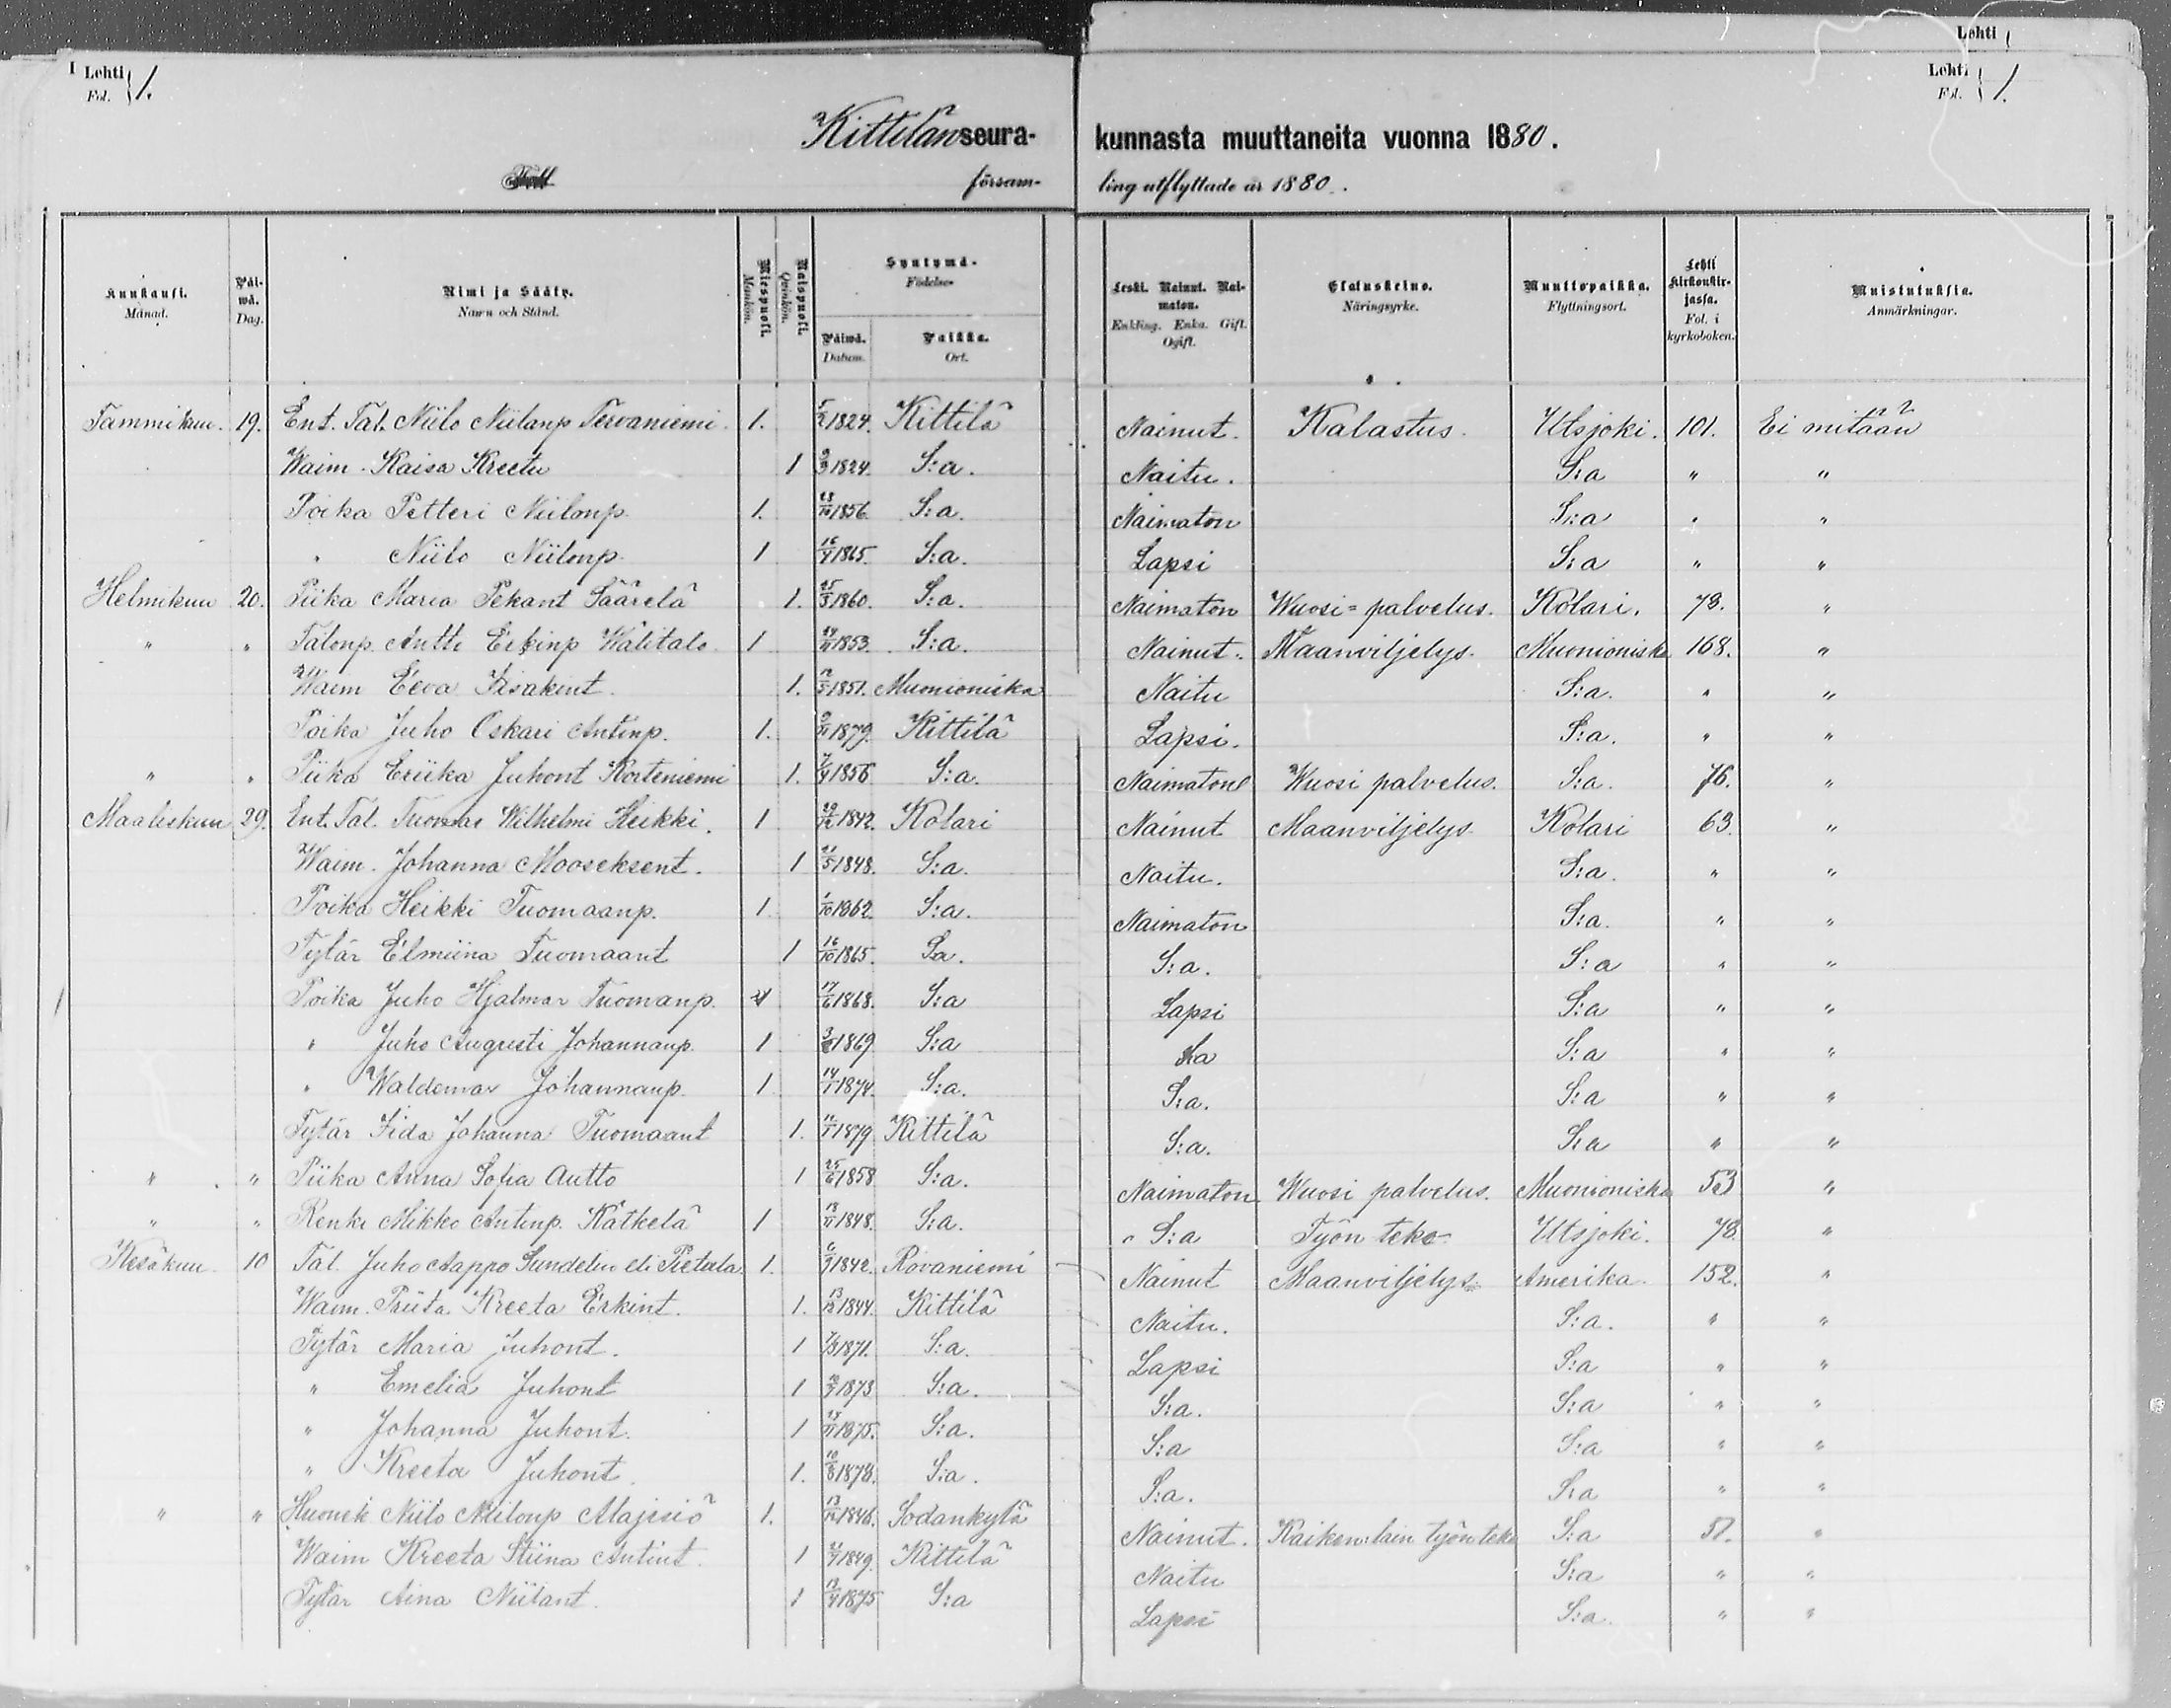 Lehti
1 Lehti 1.
Fol.
Lehti 1.
Fol.
Kittilän seura- kunnasta muuttaneita vuonna 1880.
försam- ling utflyttade år 1880.
Kuukausi. Månad. Päi-wä. Dag. Nimi ja Sääty. Namn och Stånd. Miespuoli. Mankön. Naispuoli. Qvinkön. Syntymä- Födelse- Päiwä. Datum. Paikka. Ort. Leski. Nainut. Nai-maton. Enkling. Enka. Gift. Ogift. Elatuskeino. Näringsyrke. Muuttopaikka. Flyttningsort. Lehti kirkonkir-jassa. Fol. i kyrkoboken. Muistutuksia. Anmärkningar.
Tammikuu. 19. Ent. Tal. Niilo Niilanp Tervaniemi. 1. 5/2 1824. Kittilä Nainut. Kalastus. Utsjoki. 101. Ei mitään
Waim. Kaisa Kreetu 1 9/3 1824. S:a. Naitu. S:a " "
Poika Petteri Niilonp. 1. 1856. S:a. Naimaton S:a " "
" Niilo Niilonp. 1 16/4 1865. S:a. Lapsi S:a " "
Helmikuu 20. Piika Maria Pekant Säärelä 1. 25/3 1860. S:a. Naimaton Wuosi=palvelus. Kolari. 78. "
" " Talonp. Antti Erkinp Wälitalo 1 1853. S:a. Nainut. Maanviljelys. Muonioniska 168. "
Waim Eeva Iisakint. 1. 12/5 1851. Muonioniska Naitu S:a. " "
Poika Juho Oskari Antinp. 1. 9/11 1879. Kittilä Lapsi. S:a. " "
" " Piika Eriika Juhont Korteniemi 1. 7/9 1856 S:a. Naimaton Wuosi palvelus. S:a. 76. "
Maaliskuu 29. Ent. Tal. Tuomas Wilhelmi Heikki. 1 29/12 1842. Kolari Nainut Maanviljelys. Kolari 63. "
Waim. Johanna Mooseksent. 1 21/5 1848. S:a. Naitu. S:a. " "
Poika Heikki Tuomaanp. 1. 1/10 1862. S:a. Naimaton S:a. " "
Tytär Elmiina Tuomaant 1 16/10 1865. S:a. S:a. S:a " "
Poika Juho Hjalmar Tuomanp. 1 17/6 1868. S:a Lapsi S:a " "
" Juho Augusti Johannanp. 1 1869 S:a S:a S:a " "
" Waldemar Johannanp. 1. 14/1 1874. S:a. S:a. S:a " "
Tytär Iida Johanna Tuomaant 1. 11/1 1879 Kittilä S:a. S:a " "
" " Piika Anna Sofia Autto 1 25/6 1858 S:a. Naimaton Wuosi palvelus. Muonioniska 53 "
" " Renki Mikko Antinp. Kätkelä 1 13/11 1848. S:a. " S:a Työn teko Utsjoki. 78. "
Kesäkuu. 10 Tal. Juho Aappo Sundelin eli Pietala 1. 6/9 1842. Rovaniemi Nainut Maanviljelys. Amerika. 152. "
Waim. Priita Kreeta Erkint. 1. 13/12 1844. Kittilä Naitu. S:a. " "
Tytär Maria Juhont. 1 7/3 1871. S:a. Lapsi S:a " "
" Emelia Juhont 1 1873 S:a. S:a. S:a " "
" Johanna Juhont. 1 1875. S:a. S:a S:a " "
" Kreeta Juhont. 1. 10/8 1878. S:a. S:a. S:a " "
" " Huonek Niilo Niilonp Alajesiö 1. 13/12 1846. Sodankylä Nainut. Kaiken:lain työn teko S:a 57. "
Waim Kreeta Stiina Antint. 1 1849. Kittilä Naitu S:a " "
Tytär Aina Niilant. 1 13/4 1875 S:a Lapsi S:a. " "